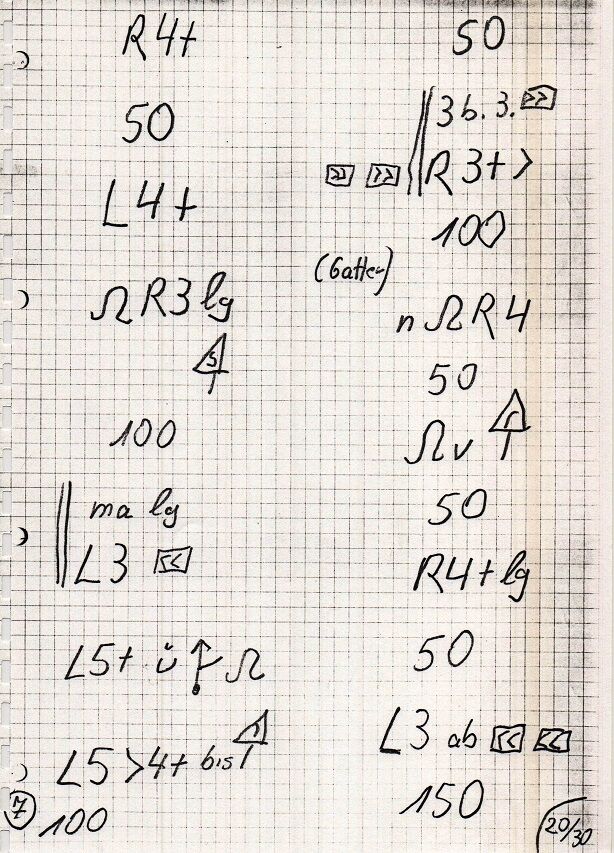 R4+
50
L4+
Ω R3 lg
S
100
ma lg
L3 <<
L5+ ü Ω
L5 >4+ bis
100
7
50
3 b. 3. >>
>> >> R3+ >
100
(Gatter)
n Ω R4
50
Ω v
50
R4+ lg
50
L3 ab << <<
150
20/30